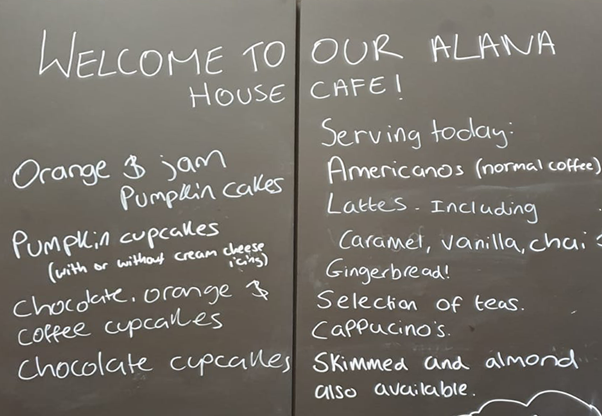 WELCOME TO OUR ALANA
HOUSE CAFE!
Orange & jam
Pumpkin cakes
Pumpkin cupcakes
(with or without cream cheese
icing)
Chocolate, orange &
coffee cupcakes
Chocolate cupcakes
Serving today:
Americanos (normal coffee)
Lattes - Including
Caramel, vanilla, chai &
Gingerbread!
Selection of teas.
Cappucino's.
Skimmed and almond
also available.